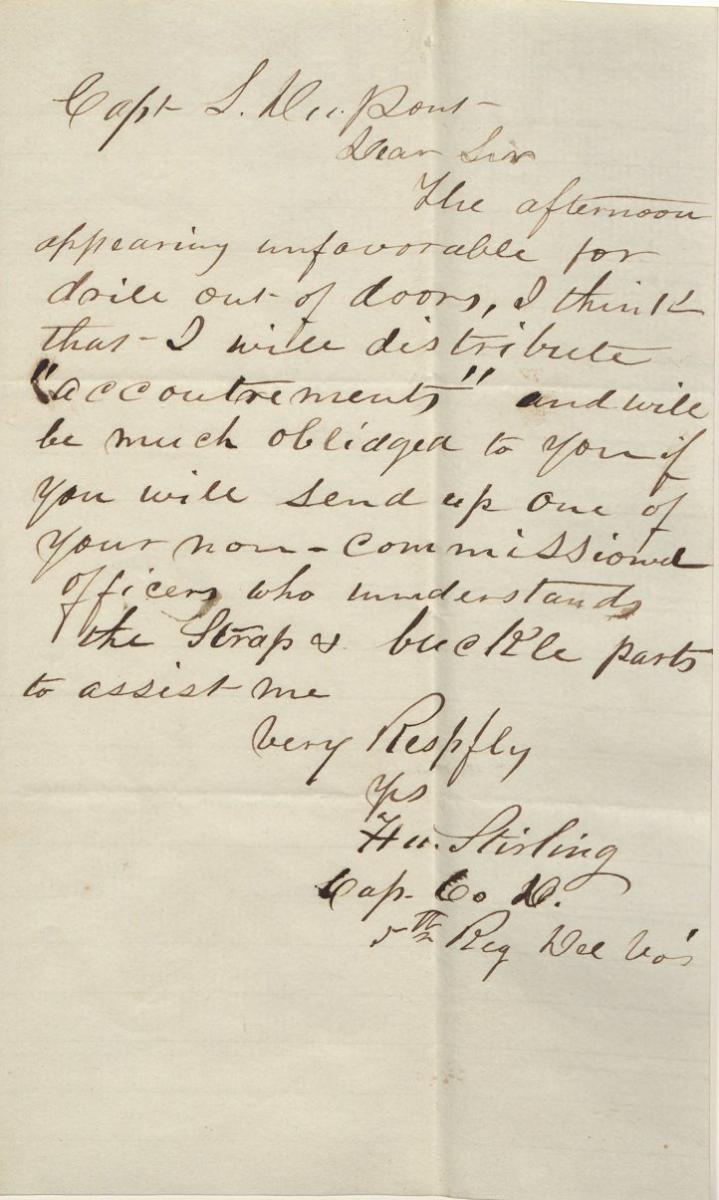 Capt L. Du.Pont
Dear Sir
The afternoon
appearing unfavorable for
drill out of doors, I think
that I will distribute
"accoutrements" and will
be much oblidged to you if
you will send up one of
your non-commissiond
officers who understands
the Strap & buckle parts
to assist me
Very Respfly
Yrs
Stirling
Cap. Co D.
5th Reg Del Vo's